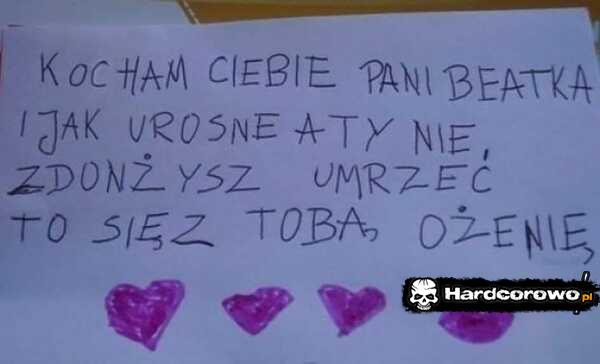 KOCHAM CIEBIE PANI BEATKA
I JAK UROSNE A TY NIE
ZDONŻYSZ UMRZEĆ
TO SIĘ Z TOBĄ OŻENIĘ
Hardcorowo.pl